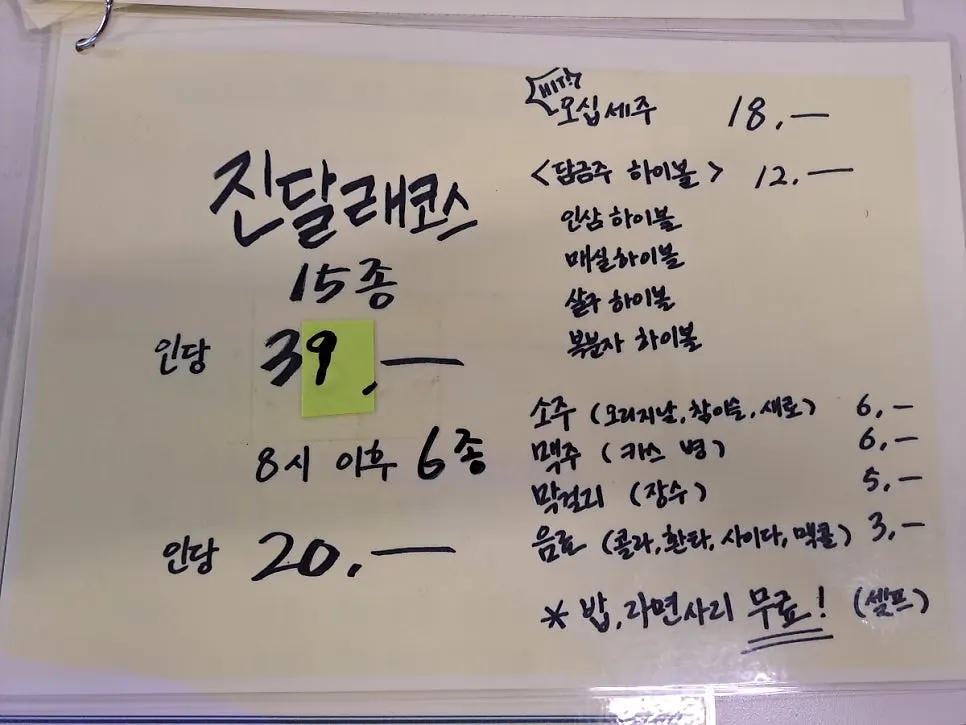 진달래코스
15종
인당 39,—
8시 이후 6종
인당 20,—
HIT!
오십세주 18,—
<담금주 하이볼> 12,—
인삼 하이볼
매실하이볼
살구 하이볼
복분자 하이볼
소주 (오리지날, 참이슬, 새로) 6,—
맥주 (카스 병) 6,—
막걸리 (장수) 5,—
음료 (콜라, 환타, 사이다, 맥콜) 3,—
* 밥, 라면사리 무료! (셀프)